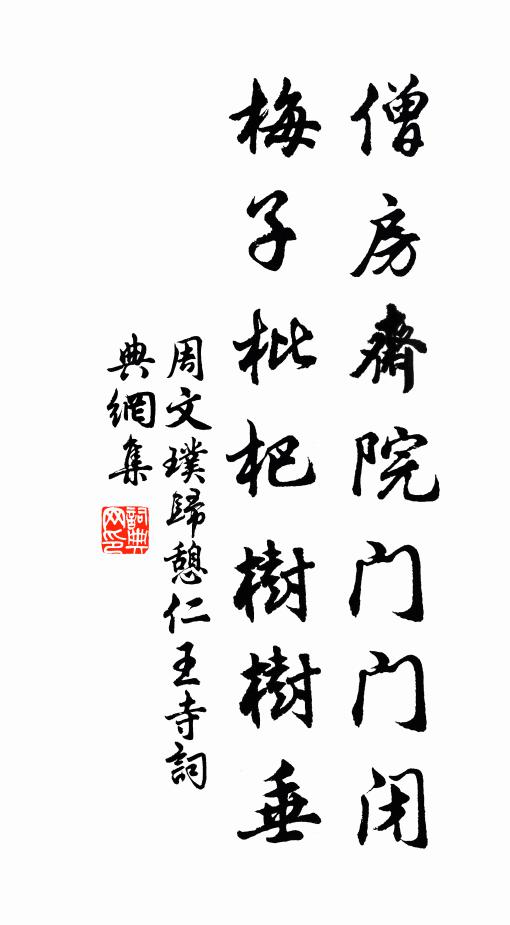 僧房齋院门门闭
梅子枇杷樹樹垂
周文璞歸憩仁王寺詞
典網集
詞典
网印